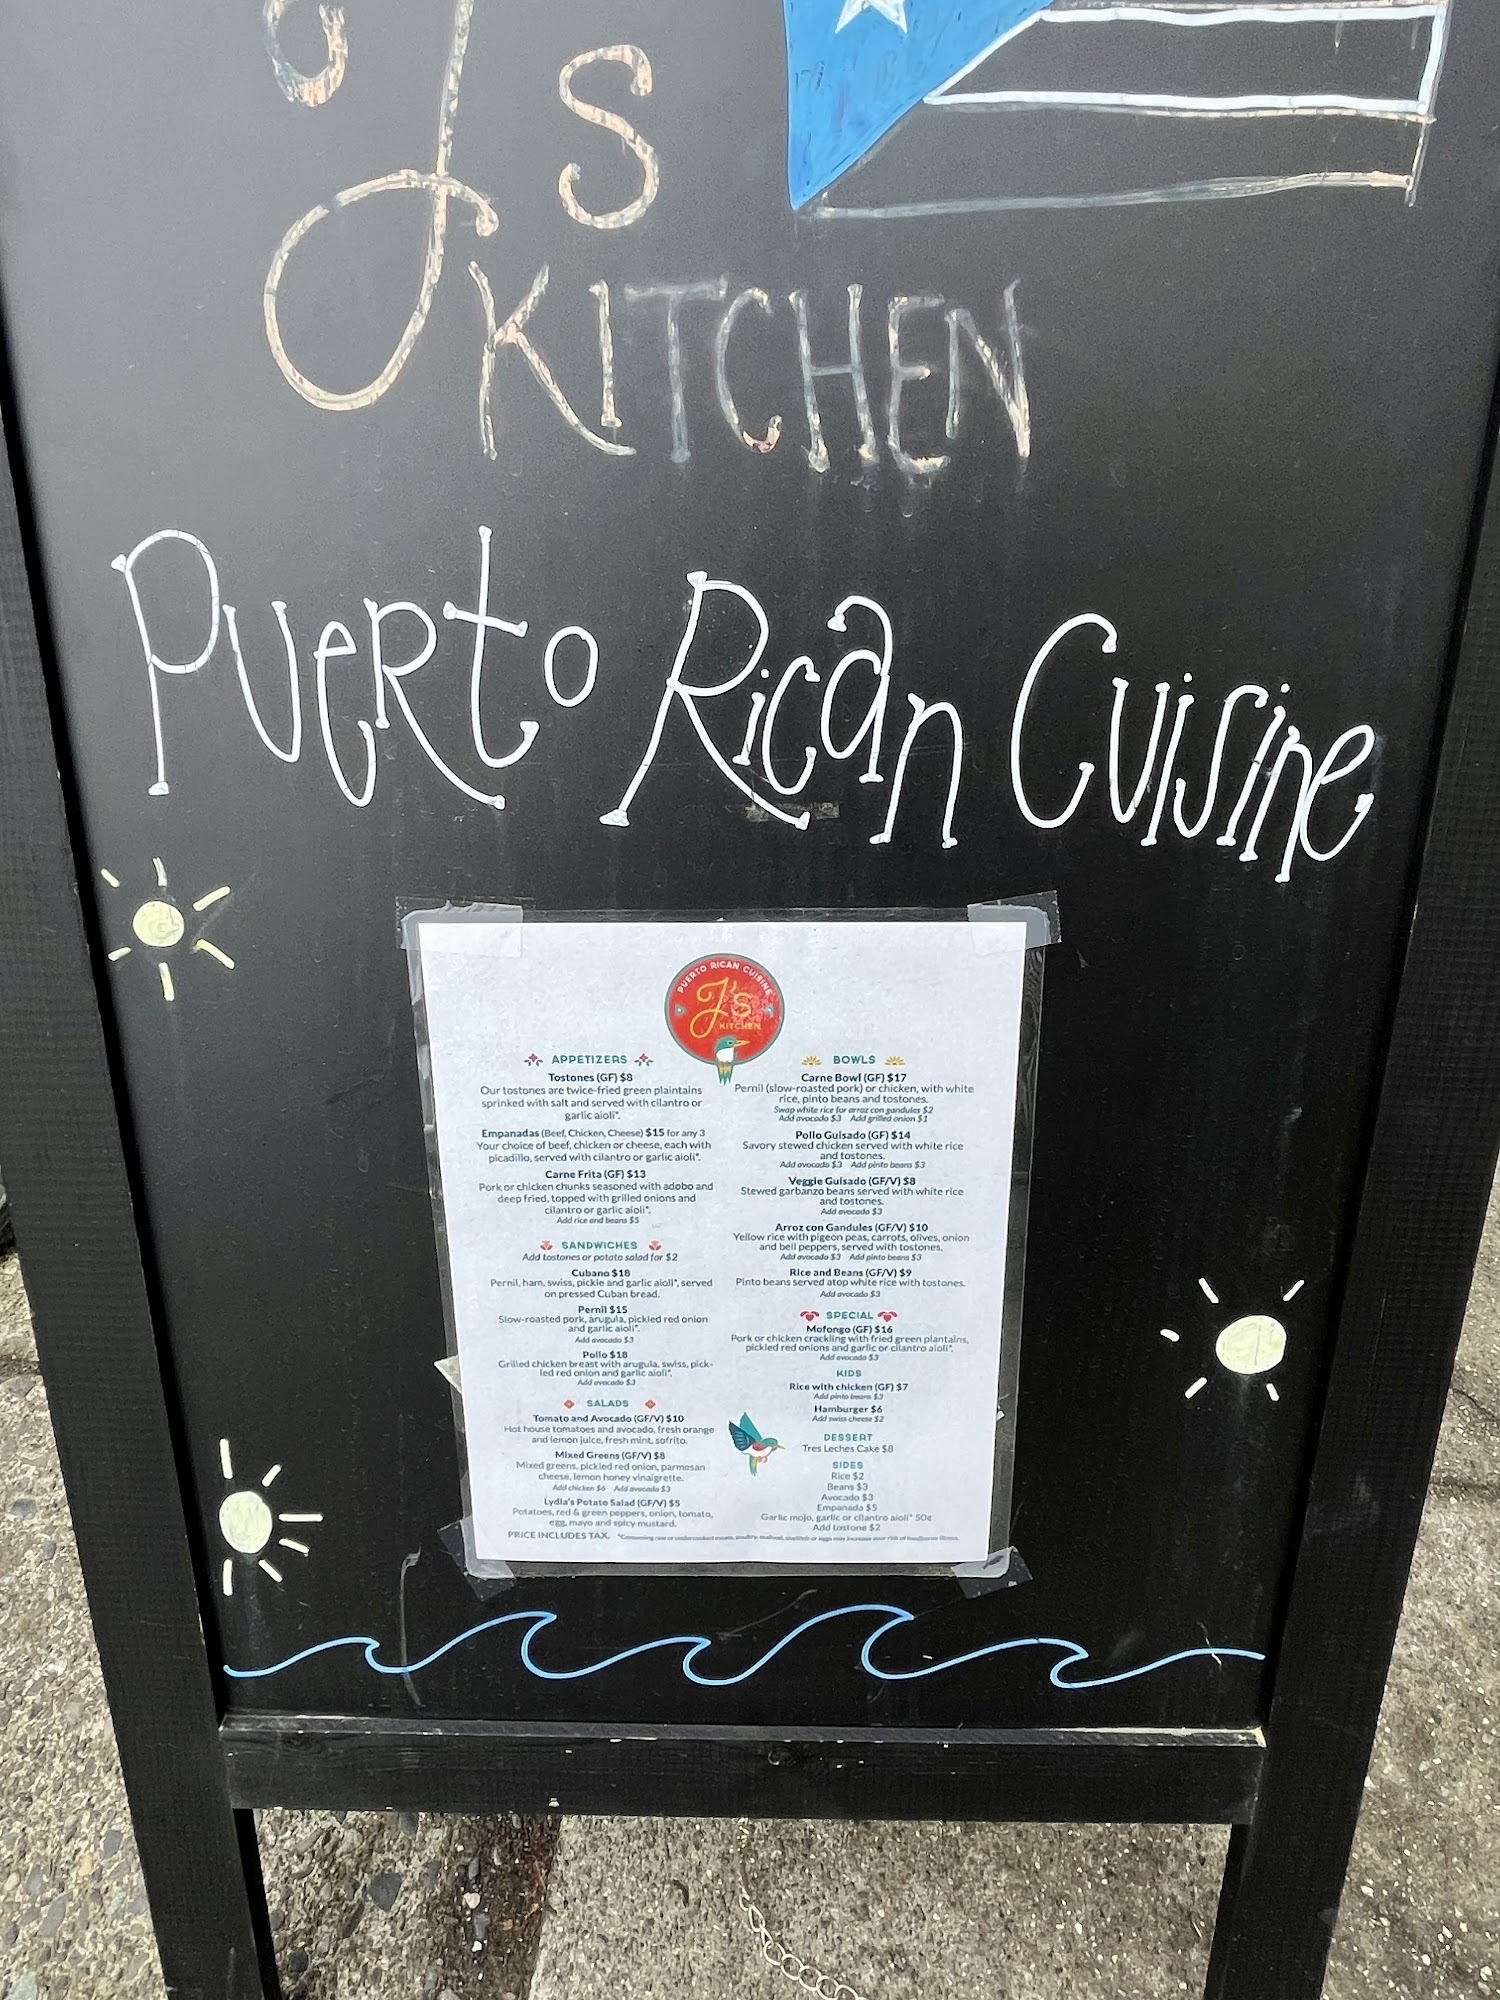 J's
KITCHEN
Puerto Rican Cuisine
PUERTO RICAN CUISINE
J's
KITCHEN
APPETIZERS
Tostones (GF) $8
Our tostones are twice-fried green plaintains
sprinked with salt and served with cilantro or
garlic aioli*.
Empanadas (Beef, Chicken, Cheese) $15 for any 3
Your choice of beef, chicken or cheese, each with
picadillo, served with cilantro or garlic aioli*.
Carne Frita (GF) $13
Pork or chicken chunks seasoned with adobo and
deep fried, topped with grilled onions and
cilantro or garlic aioli*.
Add rice and beans $5
SANDWICHES
Add tostones or potato salad for $2
Cubano $18
Pernil, ham, swiss, pickle and garlic aioli*, served
on pressed Cuban bread.
Pernil $15
Slow-roasted pork, arugula, pickled red onion
and garlic aioli*.
Add avocado $3
Pollo $18
Grilled chicken breast with arugula, swiss, pick-
led red onion and garlic aioli*.
Add avocado $3
SALADS
Tomato and Avocado (GF/V) $10
Hot house tomatoes and avocado, fresh orange
and lemon juice, fresh mint, sofrito.
Mixed Greens (GF/V) $8
Mixed greens, pickled red onion, parmesan
cheese, lemon honey vinaigrette.
Add chicken $6 Add avocado $3
Lydia's Potato Salad (GF/V) $5
Potatoes, red & green peppers, onion, tomato,
egg, mayo and spicy mustard.
BOWLS
Carne Bowl (GF) $17
Pernil (slow-roasted pork) or chicken, with white
rice, pinto beans and tostones.
Swap white rice for arroz con gandules $2
Add avocado $3 Add grilled onion $1
Pollo Guisado (GF) $14
Savory stewed chicken served with white rice
and tostones.
Add avocado $3 Add pinto beans $3
Veggie Guisado (GF/V) $8
Stewed garbanzo beans served with white rice
and tostones.
Add avocado $3
Arroz con Gandules (GF/V) $10
Yellow rice with pigeon peas, carrots, olives, onion
and bell peppers, served with tostones.
Add avocado $3 Add pinto beans $3
Rice and Beans (GF/V) $9
Pinto beans served atop white rice with tostones.
Add avocado $3
SPECIAL
Mofongo (GF) $16
Pork or chicken crackling with fried green plantains,
pickled red onions and garlic or cilantro aioli*.
Add avocado $3
KIDS
Rice with chicken (GF) $7
Add pinto beans $3
Hamburger $6
Add swiss cheese $2
DESSERT
Tres Leches Cake $8
SIDES
Rice $2
Beans $3
Avocado $3
Empanada $5
Garlic mojo, garlic or cilantro aioli* 50¢
Add tostone $2
PRICE INCLUDES TAX. *Consuming raw or undercooked meats, poultry, seafood, shellfish or eggs may increase your risk of foodborne illness.